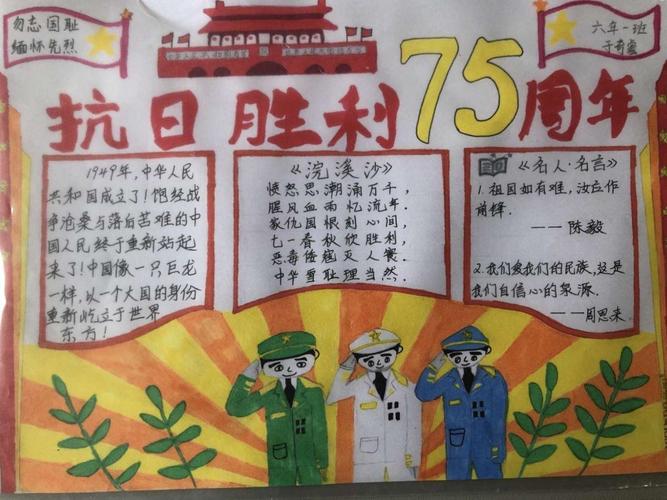 勿忘国耻
缅怀先烈
六年一班
抗日胜利75周年
1949年,中华人民
共和国成立了!饱经战
争沧桑与落后苦难的中
国人民终于重新站起
来了!中国像一只巨龙
一样,以一个大国的身份
重新屹立于世界
东方!
《浣溪沙》
愤怒思潮涌万千,
腥风血雨忆流年.
家仇国恨刻心间,
七一春秋欣胜利,
恶毒倭寇灭人寰.
中华雪耻理当然.
《名人·名言》
1.祖国如有难,汝应作
前锋.
——陈毅
2.我们爱我们的民族,这是
我们自信心的泉源.
——周恩来